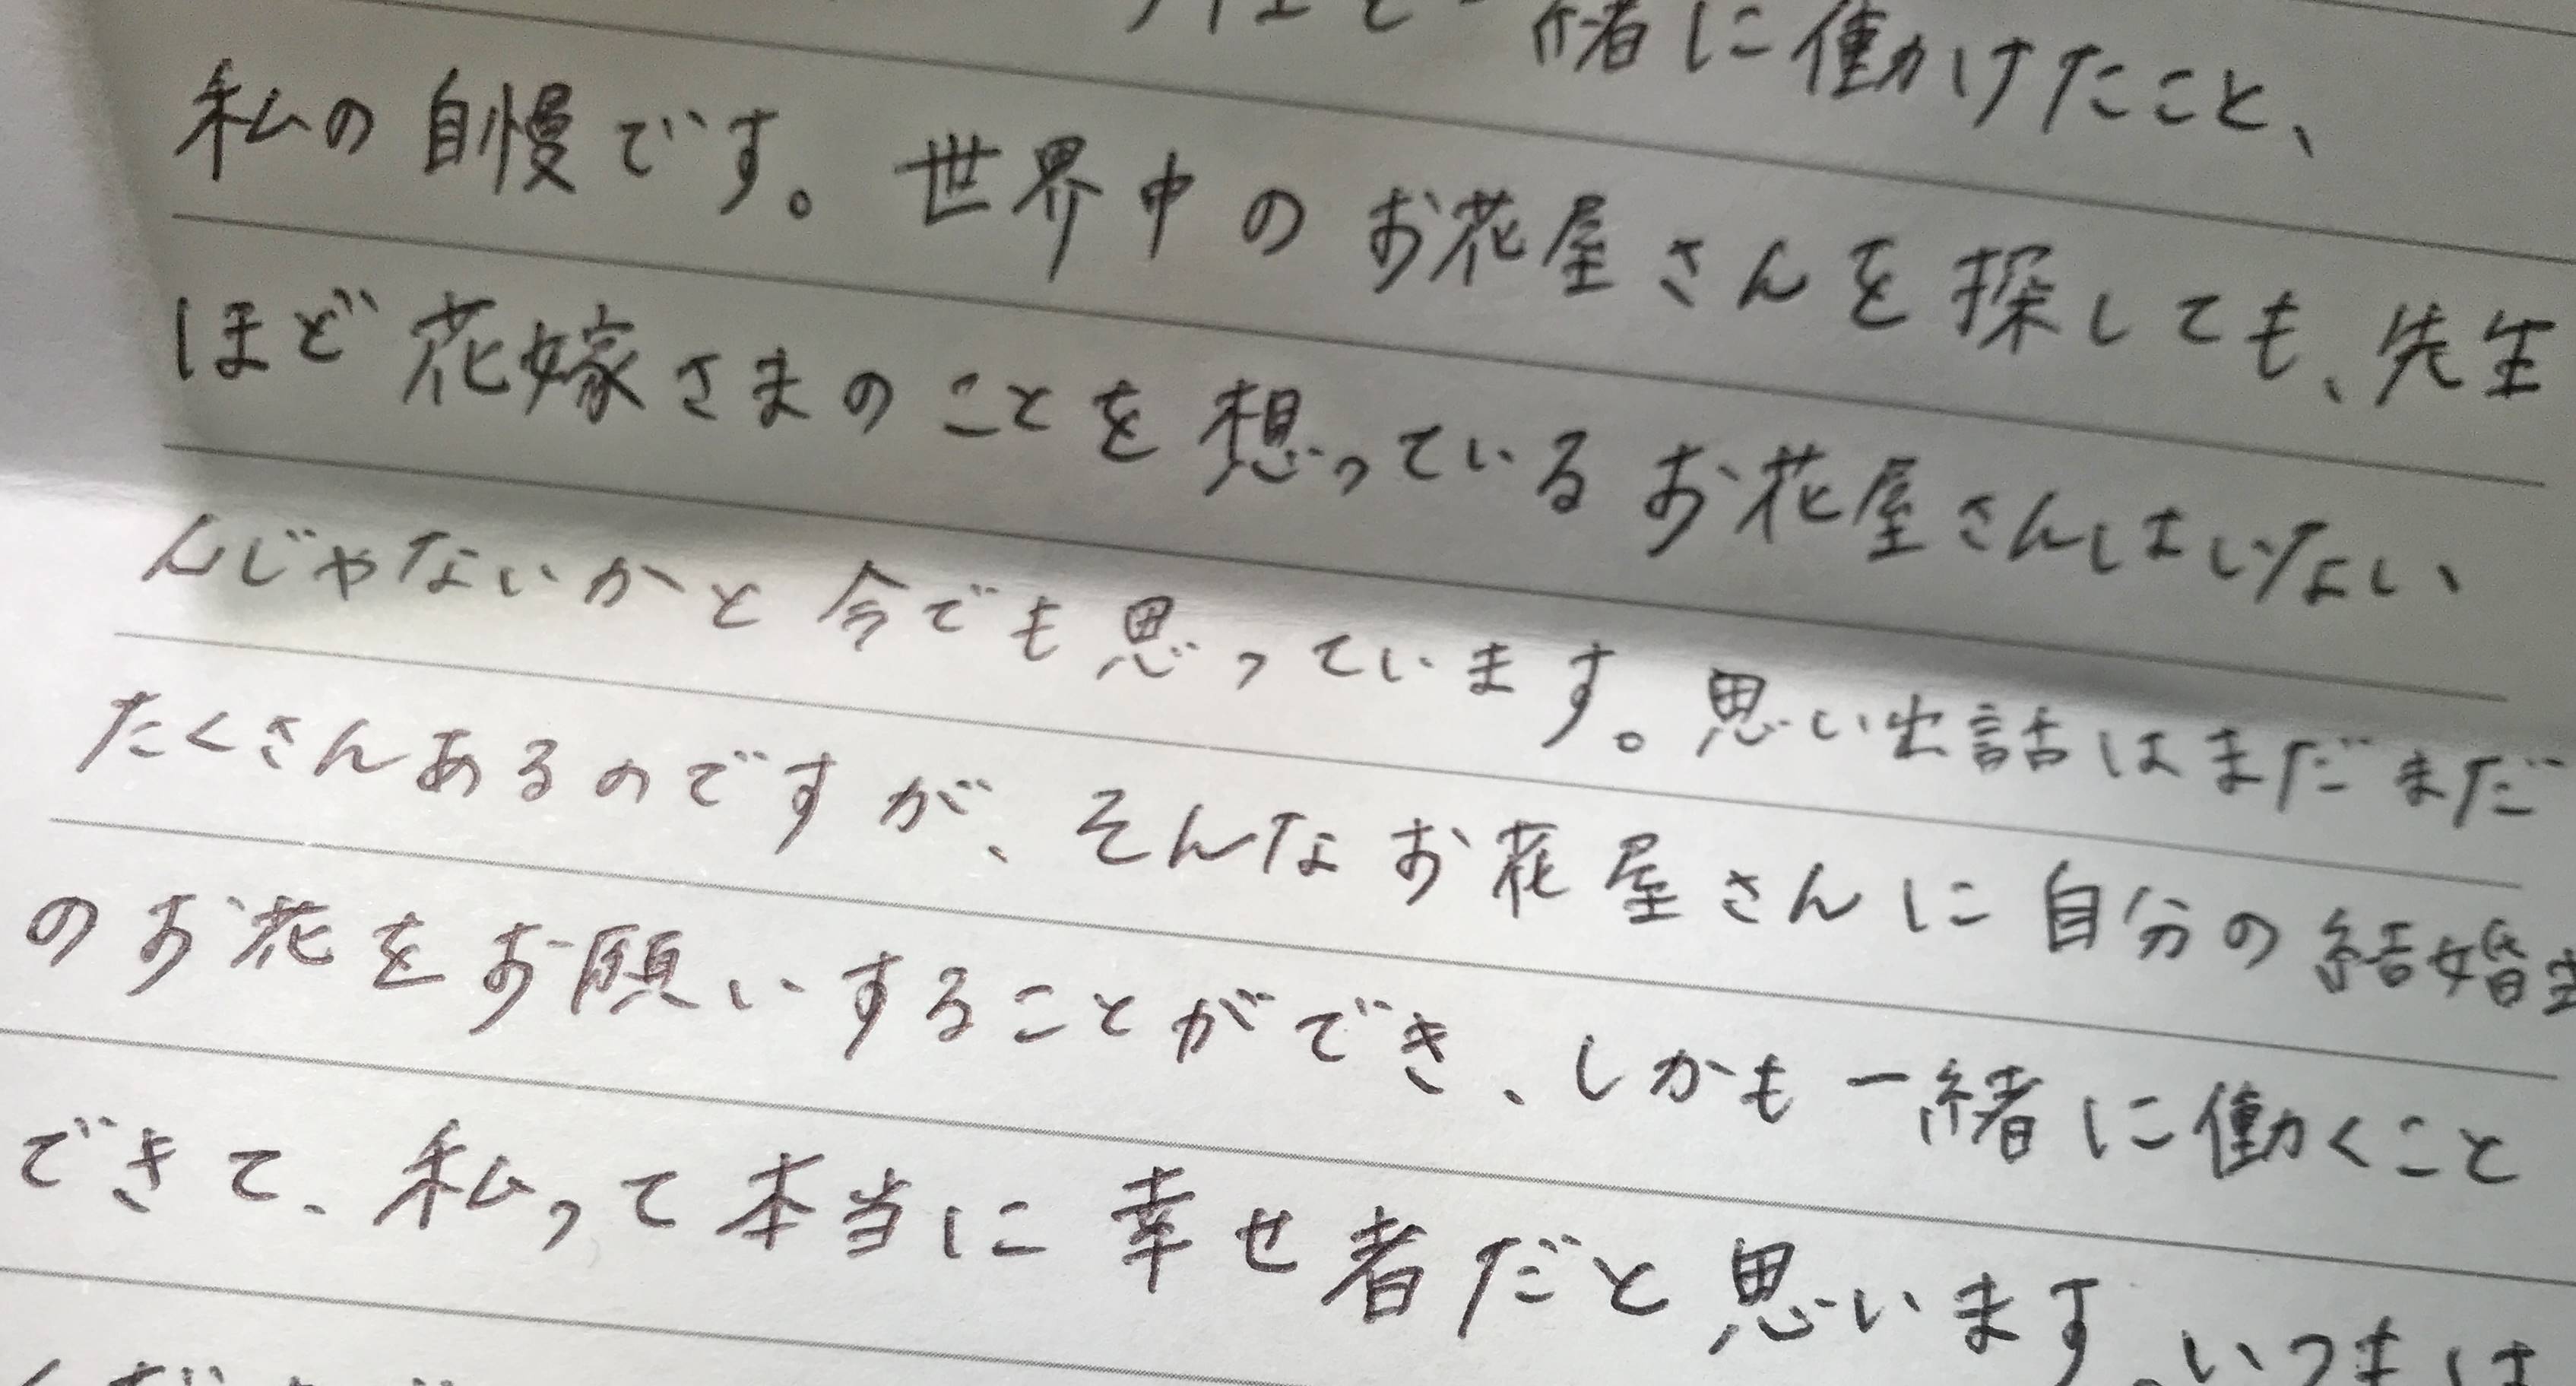 緒に働けたこと、
私の自慢です。世界中のお花屋さんを探しても、先生
ほど花嫁さまのことを想っているお花屋さんはいない
んじゃないかと今でも思っています。思い出話はまだまだ
たくさんあるのですが、そんなお花屋さんに自分の結婚
のお花をお願いすることができ、しかも一緒に働くこと
できて、私って本当に幸せ者だと思います。いつもは